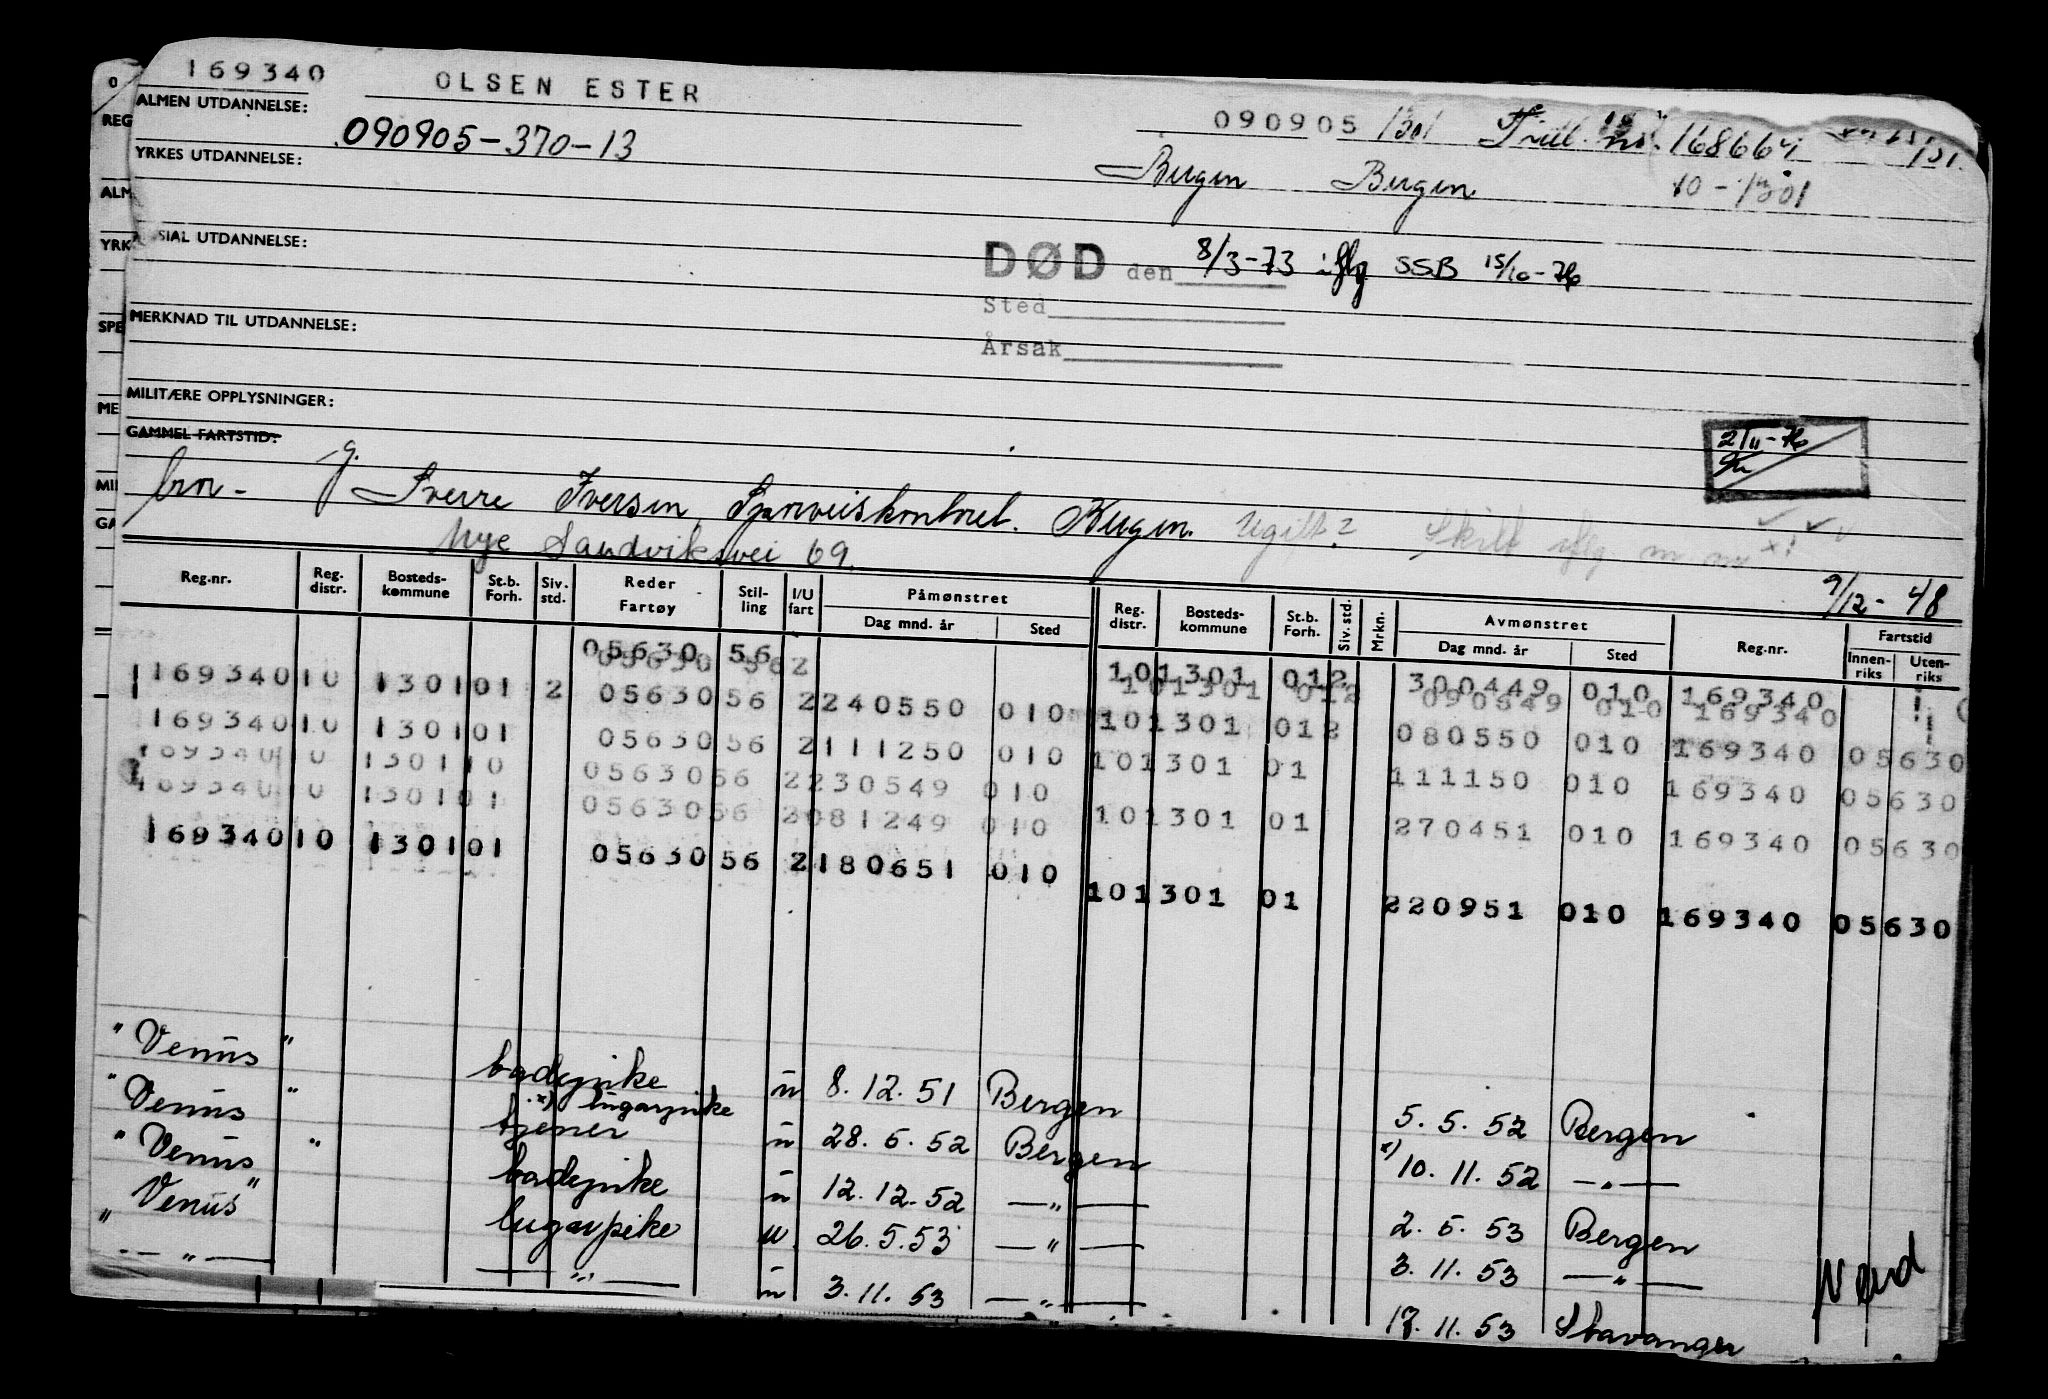 169340 OLSEN ESTER
ALMEN UTDANNELSE: 090905 1301 168664 151.
090905-370-13
YRKES UTDANNELSE: Bergen Bergen 10-1301
SIAL UTDANNELSE:
DØD den 8/3-73 iflg SSB 15/10-76
Sted
MERKNAD TIL UTDANNELSE:
Årsak
MILITÆRE OPPLYSNINGER:
GAMMEL FARTSTID:
2/11-76
g. Sverre Iversen, Sporveiskontoret. Bergen. Ugift? Skilt iflg. m.
Nye Sandviksvei 69.
9/12-48
Reg.nr. Reg. distr. Bosteds- kommune St.b. Forh. Siv. std. Reder Fartøy Stil- ling I/U fart Påmønstret Dag mnd. år Sted Reg. distr. Bosteds- kommune St.b. Forh. Siv. std. Mrkn. Avmønstret Dag mnd. år Sted Reg.nr. Fartstid Innen- riks Uten- riks
05630 56 101301 012 300449 010 169340
169340 10 1301 01 2 05630 56 2 240550 010 101301 012 080550 010 169340 05630
169340 10 1301 01 05630 56 2 111250 010 101301 01 111150 010 169340 05630
169340 10 1301 10 05630 56 2 230549 010 101301 01 270451 010 169340 05630
169340 10 1301 01 05630 56 2 081249 010
169340 10 1301 01 05630 56 2 180651 010 101301 01 220951 010 169340 05630
"Venus" badepike u 8.12.51 Bergen 5.5.52 Bergen
x) lugarpike
"Venus" tjener u 28.5.52 Bergen x) 10.11.52 —"—
"Venus" badepike u 12.12.52 —"— 2.5.53 Bergen
"Venus" lugarpike u 26.5.53 —"— 3.11.53 —"—
—"— —"— u 3.11.53 —"— 17.11.53 Stavanger
Vend